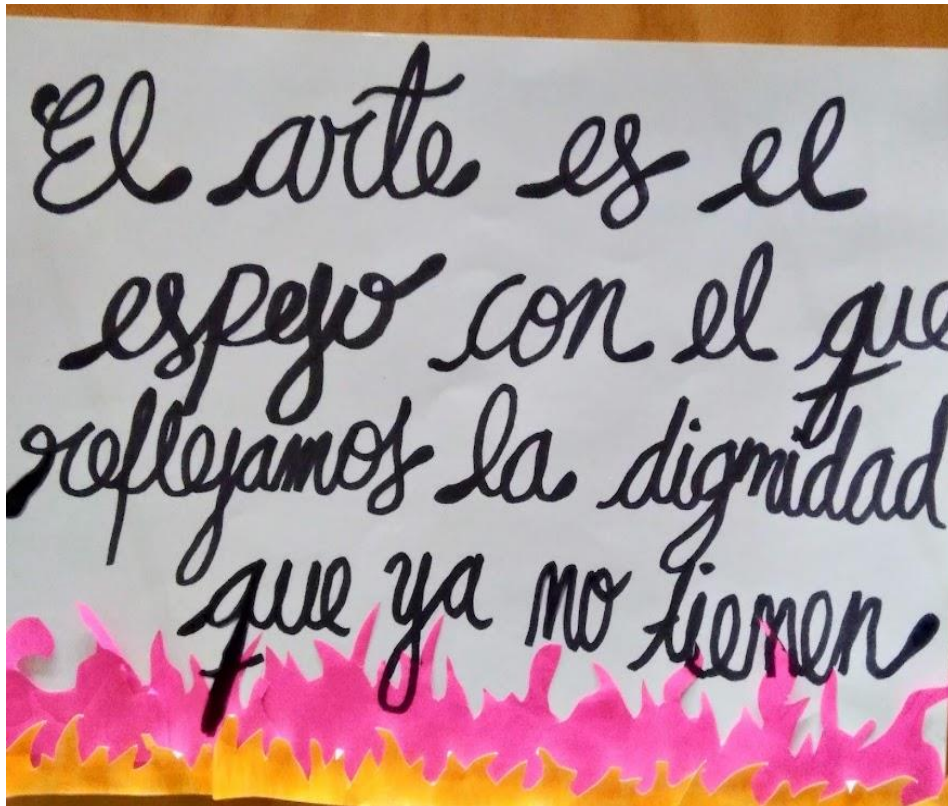 El arte es el
espejo con el que
reflejamos la dignidad
que ya no tienen